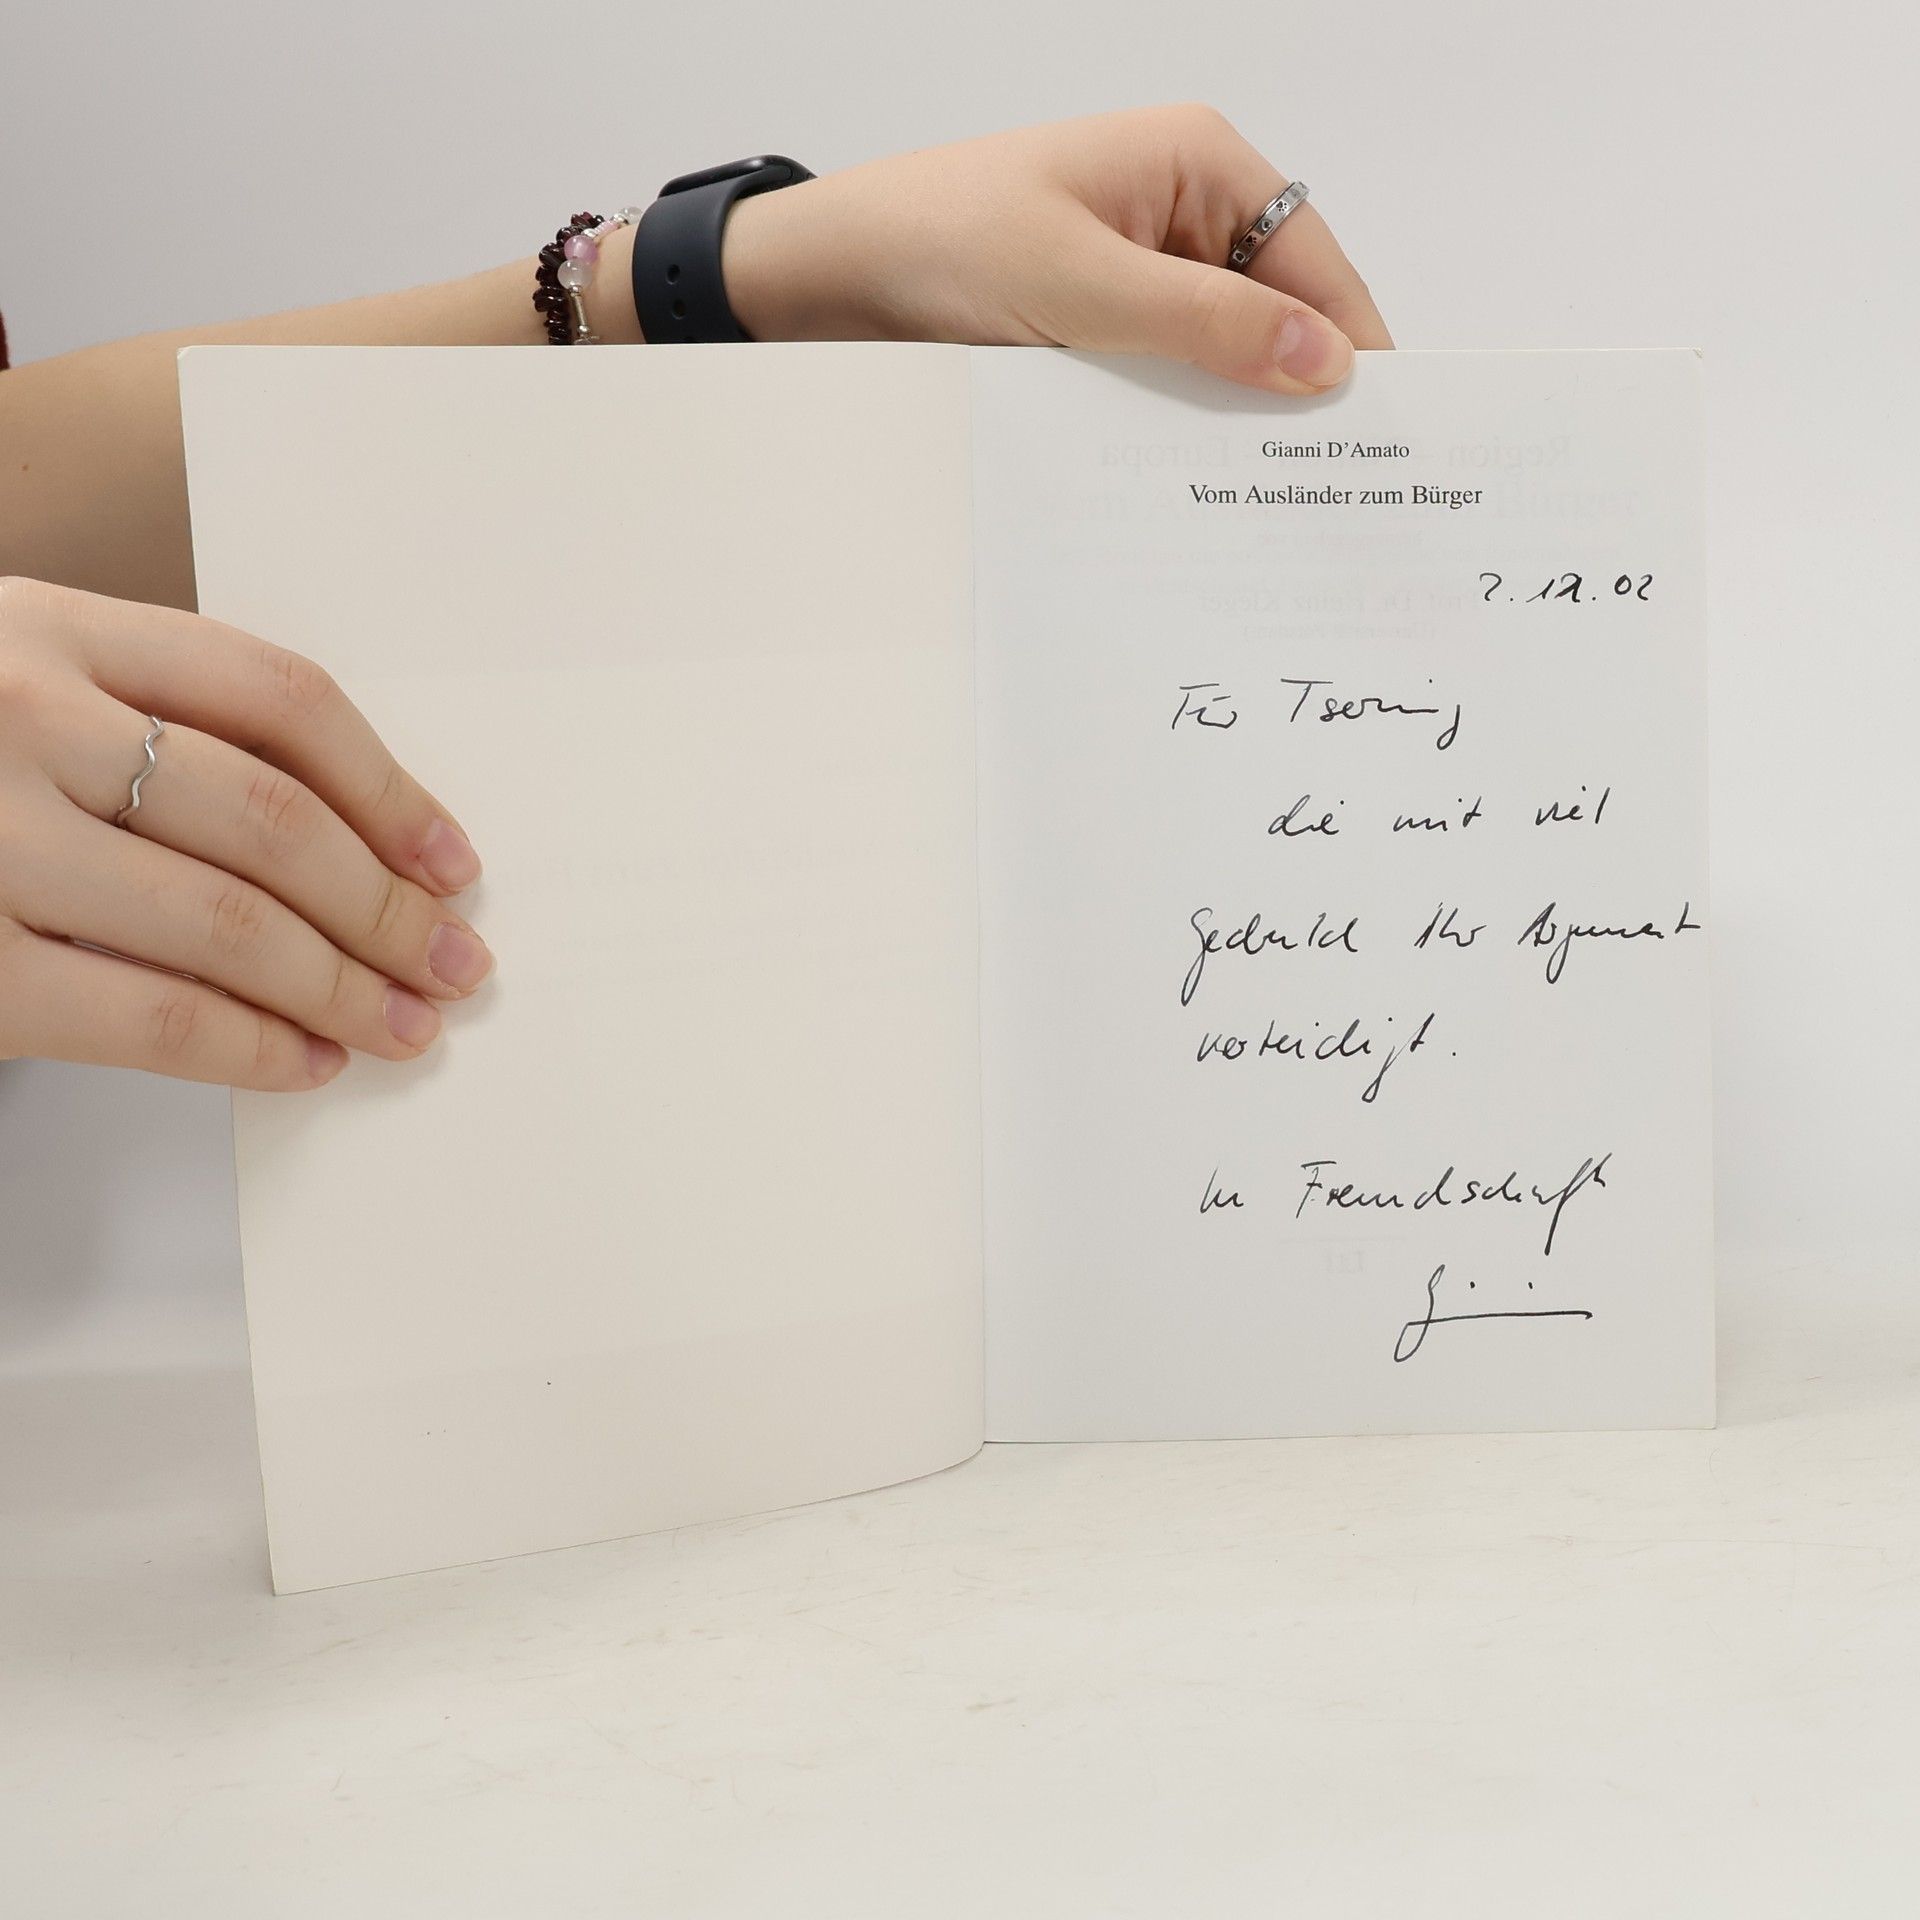 Gianni D'Amato
Vom Ausländer zum Bürger
2.12.02
Für Tsering
die mit viel
Geduld Ihr Argument
verteidigt.
In Freundschaft
Gianni